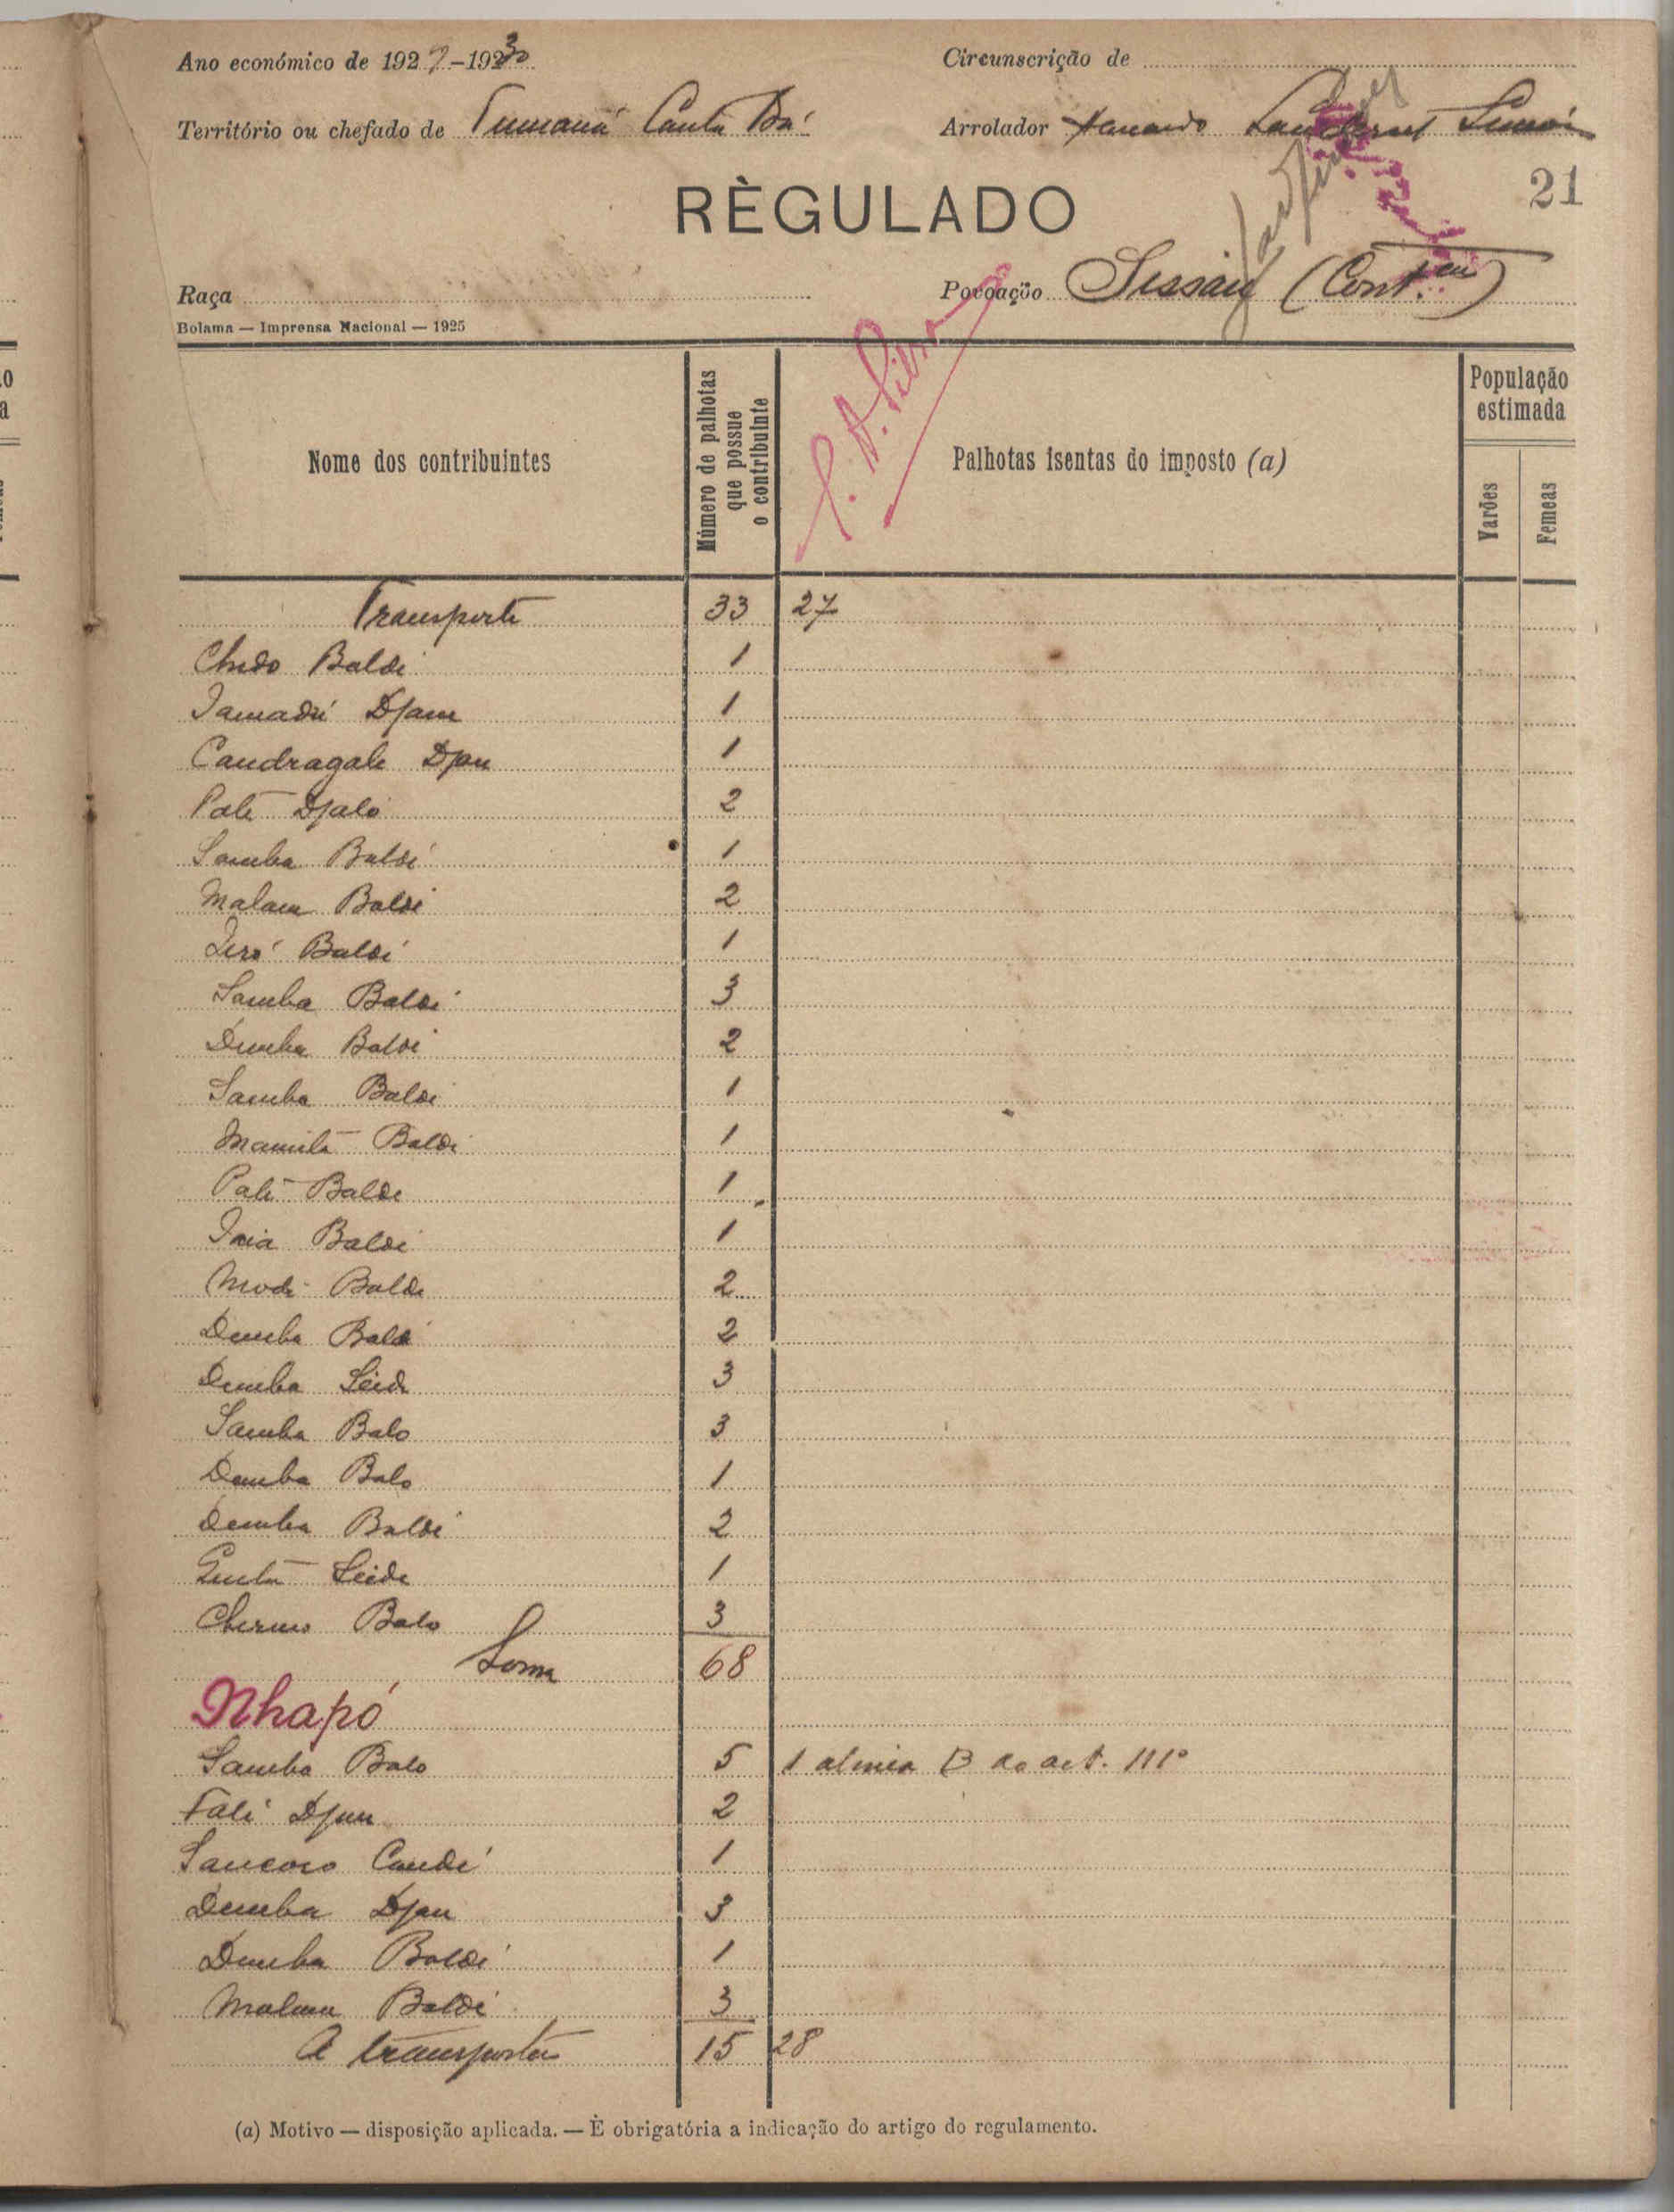 Ano económico de 1929-1930
Circunscrição de
Território ou chefado de Tumaná Canta Bá
Arrolador
21
RÈGULADO
Raça
Povoação Sissay (Cont.)
Bolama — Imprensa Nacional — 1925
Nome dos contribuintes
Número de palhotas que possue o contribuinte
Palhotas isentas do imposto (a)
População estimada
Varões
Femeas
Transporte 33 27
Baldé 1
Mamadú Djam 1
Candragale Djau 1
Paté Djaló 2
Samba Baldé 1
Malam Baldé 2
Baldé 1
Samba Baldé 3
Demba Baldé 2
Samba Baldé 1
Baldé 1
Paté Baldé 1
Iaia Baldé 1
Modi Baldé 2
Demba Baldé 2
Demba Seide 3
Samba Balo 3
Demba Balo 1
Demba Baldé 2
Seide 1
Cherno Balo 3
Soma 68
Nhapó
Samba Balo 5 1 alinea B do art. 111º
Fali Djau 2
Sancoro Candé 1
Demba Djau 3
Demba Baldé 1
Malam Baldé 3
A transportar 15 28
(a) Motivo — disposição aplicada. — È obrigatória a indicação do artigo do regulamento.